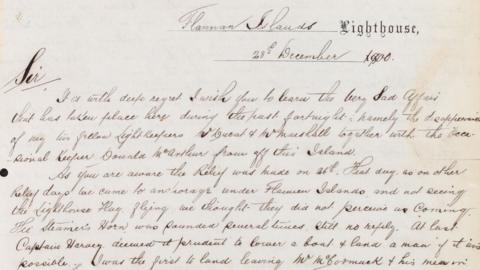 Flannan Islands Lighthouse,
28th December 1900.
Sir
It is with deep regret I wish you to learn the very Sad Affair
that has taken place here during the past fortnight; namely the disappearance
of my two fellow Lightkeepers Mr Ducat & Mr Marshall together with the Occa-
sional Keeper Donald McArthur from off this Island.
As you are aware the Relief was made on 26th. That day, as on other
Relief days we came to anchorage under Flannan Islands and not seeing
the Lighthouse Flag flying we thought they did not perceive us Coming.
The Steamer's Horn was sounded several times still no reply. At last
Captain Harvey deemed it prudent to lower a boat & land a man if it was
possible. I was the first to land leaving Mr McCormack & his men in